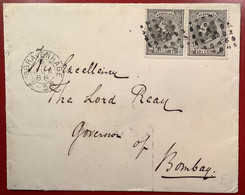 'S GRAVENHAGE
88
His Excellence
The Lord Reay
Governor of
Bombay